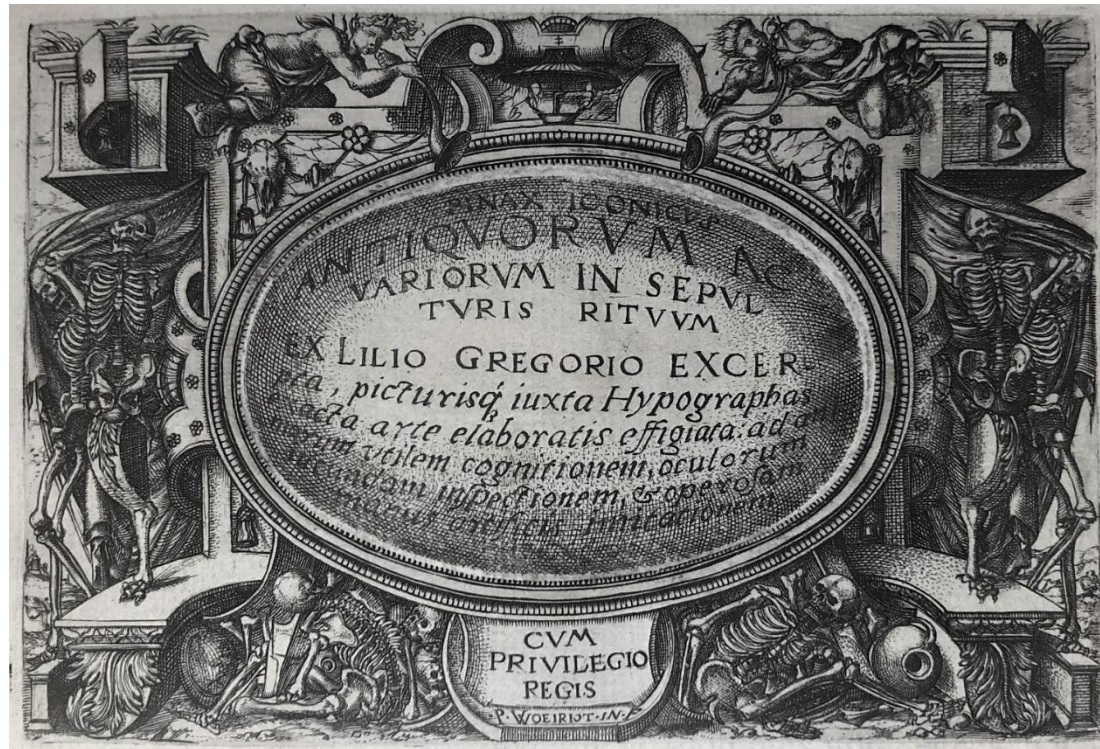 PINAX ICONICUS
ANTIQVORVM AC
VARIORVM IN SEPVL
TVRIS RITVVM
EX LILIO GREGORIO EXCER-
pta, picturisq́ iuxta Hypographas
exacta arte elaboratis effigiata: ad
utilem cognitionem, oculorum
inspectionem, & operosam
artificis imitationem
CVM
PRIVILEGIO
REGIS
P. WOEIRIOT. IN. F